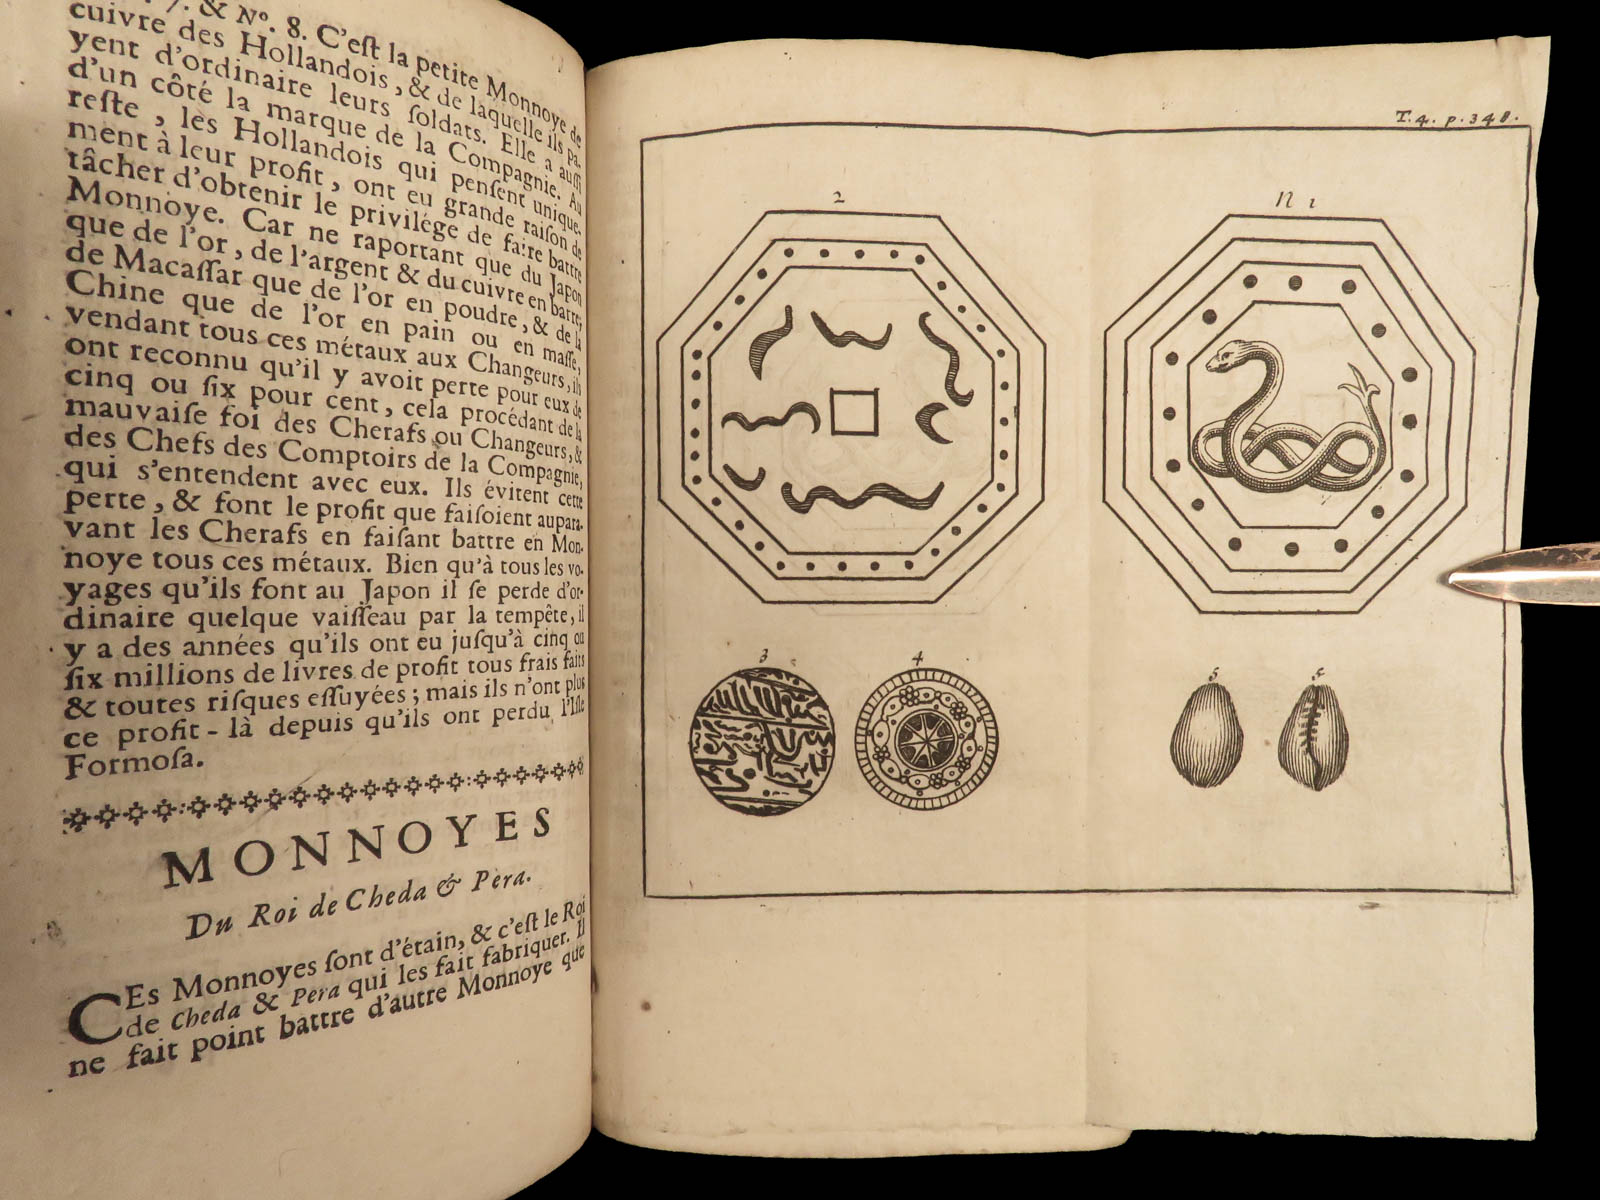 7. & Nº. 8. C'eſt la petite Monnoye de
cuivre des Hollandois, & de laquelle ils pa-
yent d'ordinaire leurs ſoldats. Elle a auſſi
d'un côté la marque de la Compagnie. Au
reſte, les Hollandois qui penſent unique-
ment à leur profit, ont eu grande raiſon de
tâcher d'obtenir le privilége de faire battre
Monnoye. Car ne raportant que du Japon
que de l'or, de l'argent & du cuivre en barre,
de Macaſſar que de l'or en poudre, & de la
Chine que de l'or en pain ou en maſſe,
vendant tous ces métaux aux Changeurs, ils
ont reconnu qu'il y avoit perte pour eux de
cinq ou ſix pour cent, cela procédant de la
mauvaiſe foi des Cherafs ou Changeurs, &
des Chefs des Comptoirs de la Compagnie,
qui s'entendent avec eux. Ils évitent cette
perte, & font le profit que faiſoient aupara-
vant les Cherafs en faiſant battre en Mon-
noye tous ces métaux. Bien qu'à tous les vo-
yages qu'ils font au Japon il ſe perde d'or-
dinaire quelque vaiſſeau par la tempête, il
y a des années qu'ils ont eu juſqu'à cinq ou
ſix millions de livres de profit tous frais faits
& toutes riſques eſſuyées; mais ils n'ont plus
ce profit-là depuis qu'ils ont perdu l'Iſle
Formoſa.
MONNOYES
Du Roi de Cheda & Pera.
CEs Monnoyes ſont d'étain, & c'eſt le Roi
de Cheda & Pera qui les fait fabriquer. Il
ne fait point battre d'autre Monnoye que
T. 4. p. 348.
2
N 1
3
4
5
5